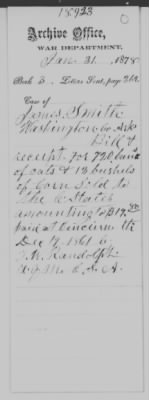 18923
Archive Office,
WAR DEPARTMENT,
Jan. 31, 1878
Book 3. Letters Sent, page
Case of
James Smith
Washington Co Ark
Bill &
receipt for 720
of oats & 12 bushels
of Corn sold to
the C States
amounting to $
paid at
Dec 7, 1861 by
Randolph
C. S. A.